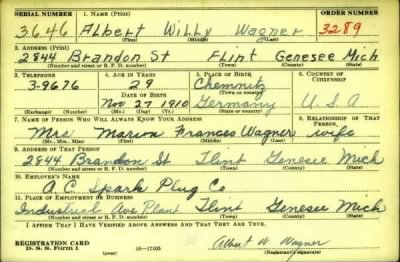 SERIAL NUMBER 1. NAME (Print) ORDER NUMBER
3646 Albert Willy Wagner 3289
(First) (Middle) (Last)
2. ADDRESS (Print)
2844 Brandon St Flint Genesee Mich
(Number and street or R. F. D. number) (Town) (County) (State)
3. TELEPHONE 4. AGE IN YEARS 5. PLACE OF BIRTH 6. COUNTRY OF CITIZENSHIP
3-9676 29 Chemnitz
DATE OF BIRTH (Town or county)
Nov 27 1910 Germany U.S.A
(Exchange) (Number) (Mo.) (Day) (Yr.) (State or country)
7. NAME OF PERSON WHO WILL ALWAYS KNOW YOUR ADDRESS 8. RELATIONSHIP OF THAT PERSON
Mrs Marion Frances Wagner wife
(Mr., Mrs., Miss) (First) (Middle) (Last)
9. ADDRESS OF THAT PERSON
2844 Brandon St Flint Genesee Mich
(Number and street or R. F. D. number) (Town) (County) (State)
10. EMPLOYER'S NAME
A. C. Spark Plug Co
11. PLACE OF EMPLOYMENT OR BUSINESS
Industrial Ave Plant Flint Genesee Mich
(Number and street or R. F. D. number) (Town) (County) (State)
I AFFIRM THAT I HAVE VERIFIED ABOVE ANSWERS AND THAT THEY ARE TRUE.
REGISTRATION CARD Albert W. Wagner
D. S. S. Form 1 (over) 16-17105 (Registrant's signature)